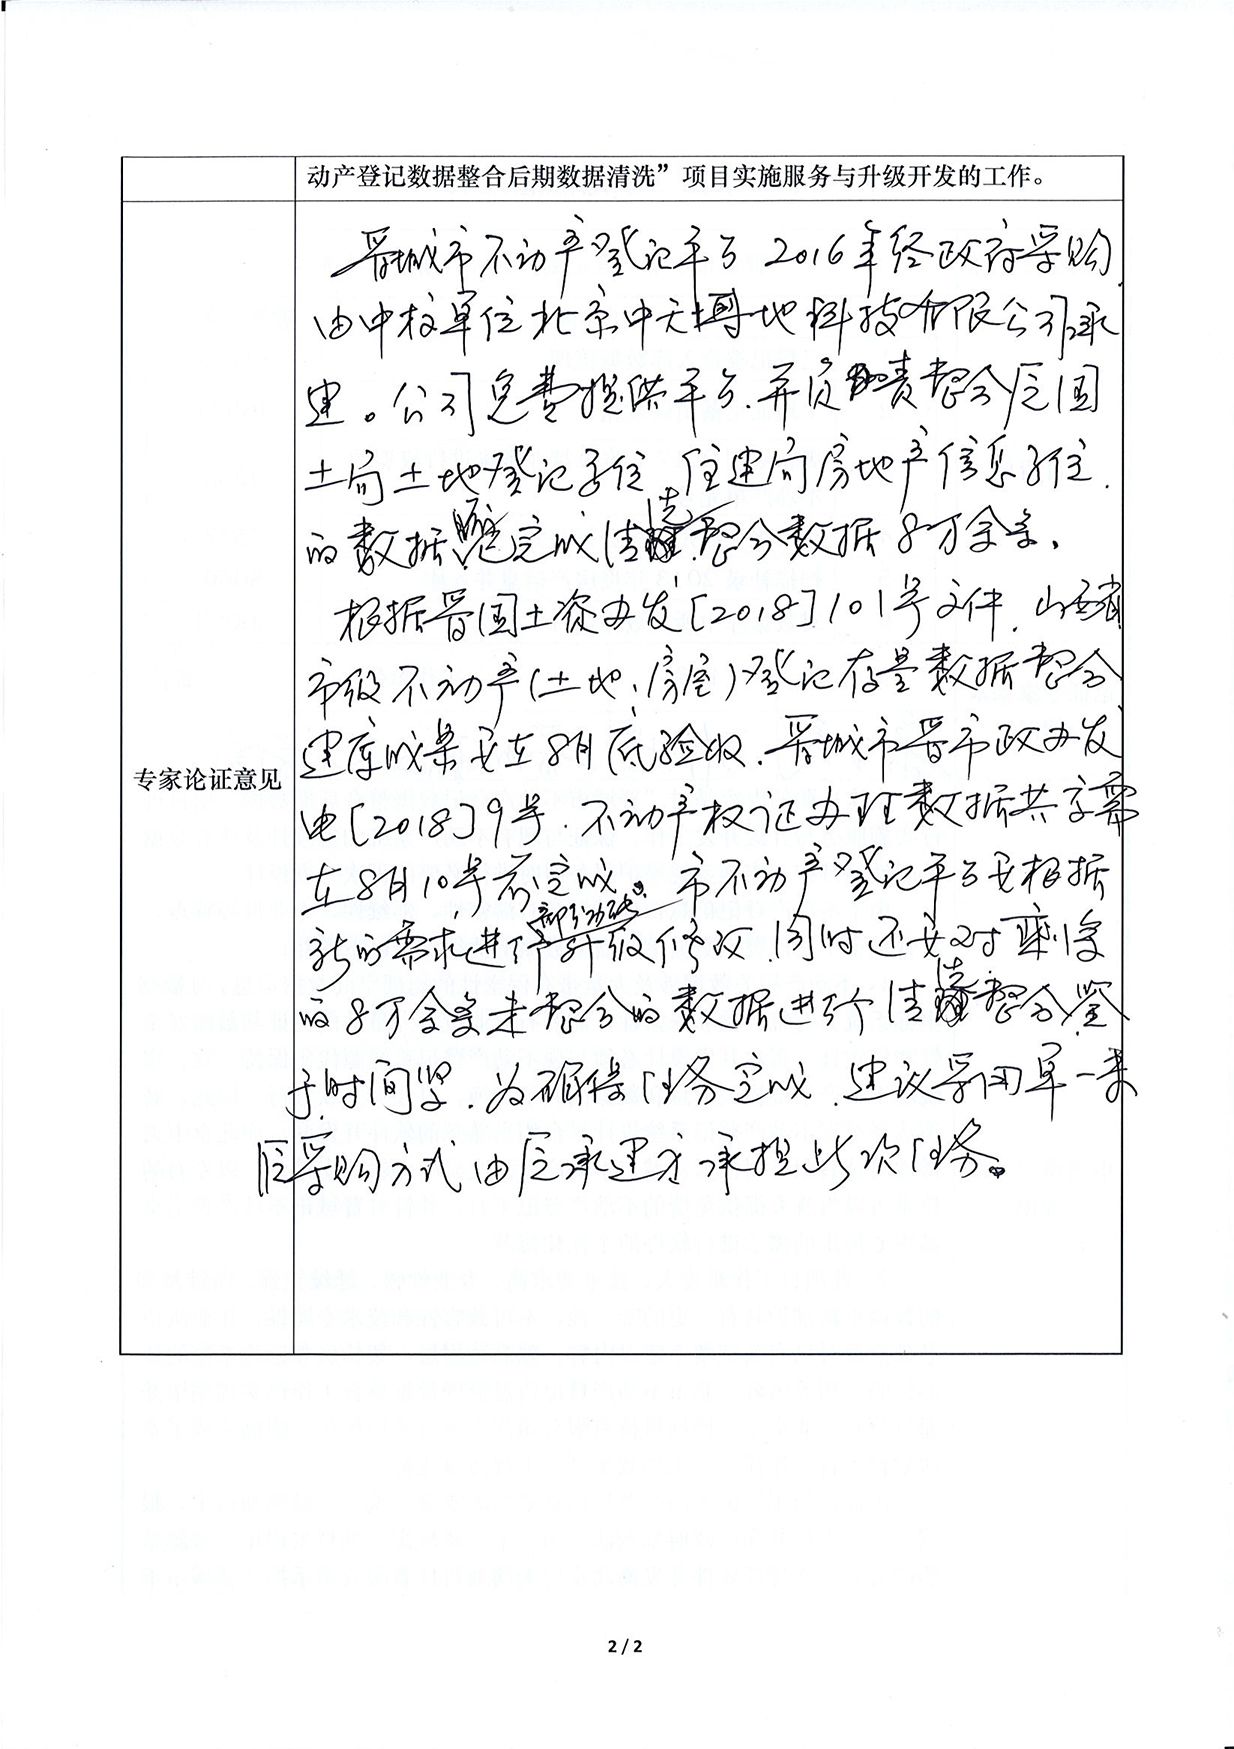 动产登记数据整合后期数据清洗”项目实施服务与升级开发的工作。
专家论证意见
晋城市不动产登记平台2016年经政府采购
由中标单位北京中天博地科技有限公司承
建。公司免费提供平台、并负责整合原国
土局土地登记系统、住建局房地产信息系统
的数据,完成清洗整合数据8万余条。
根据晋国土资办发[2018]101号文件,山西省
市级不动产(土地、房屋)登记存量数据整合
建库成果要在8月底验收。晋城市晋市政办发
电[2018]9号,不动产权证办理数据共享需
在8月10号前完成。市不动产登记平台要根据
新的需求进行部分功能升级修改,同时还要对剩余
的8万余条未整合的数据进行清洗整合,鉴
于时间紧,为确保任务完成,建议采用单一来
源采购方式由原承建方承担此次任务。
2 / 2